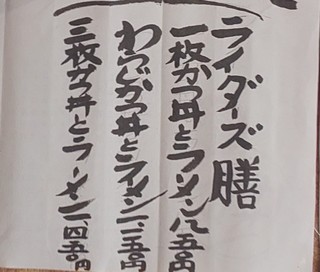 ライダーズ膳
一枚かつ丼とラーメン八五〇円
わらじかつ丼とラーメン一、一五〇円
三枚かつ丼とラーメン一、四五〇円